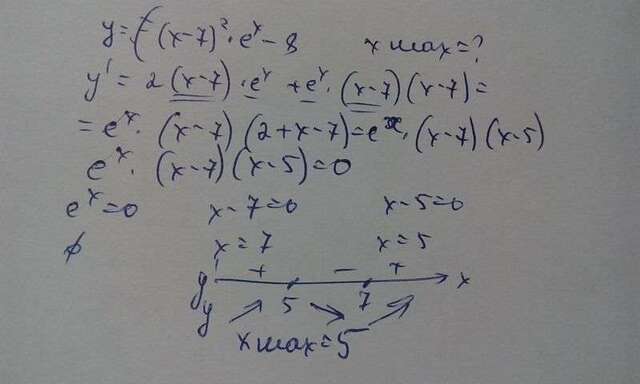 y = (x-7)² · eˣ - 8 x max = ?
y' = 2 (x-7) · eˣ + eˣ · (x-7)(x-7) =
= eˣ · (x-7) (2+x-7) = eˣ · (x-7) (x-5)
eˣ · (x-7) (x-5) = 0
eˣ = 0 x-7=0 x-5=0
∅ x = 7 x = 5
y' + - + x
y ↗ 5 ↘ 7 ↗
x max = 5